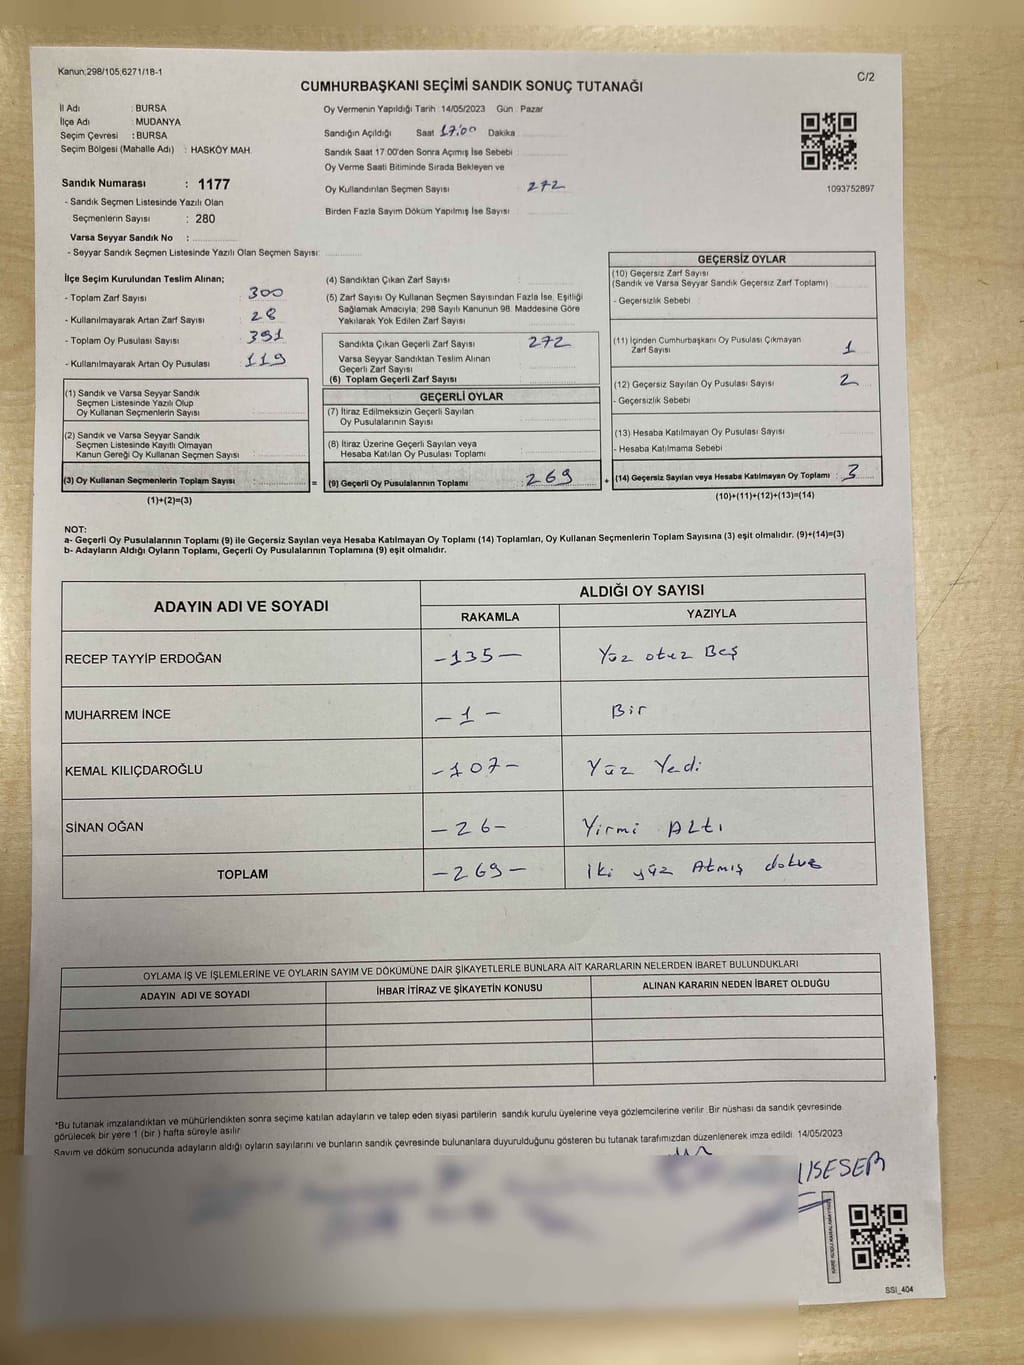 Kanun;298/105,6271/18-1
C/2
CUMHURBAŞKANI SEÇİMİ SANDIK SONUÇ TUTANAĞI
İl Adı : BURSA
İlçe Adı : MUDANYA
Seçim Çevresi : BURSA
Seçim Bölgesi (Mahalle Adı) : HASKÖY MAH.
Sandık Numarası : 1177
- Sandık Seçmen Listesinde Yazılı Olan
Seçmenlerin Sayısı : 280
Varsa Seyyar Sandık No :
- Seyyar Sandık Seçmen Listesinde Yazılı Olan Seçmen Sayısı:
Oy Vermenin Yapıldığı Tarih 14/05/2023 Gün : Pazar
Sandığın Açıldığı Saat 17:00 Dakika
Sandık Saat 17.00'den Sonra Açımış İse Sebebi :
Oy Verme Saati Bitiminde Sırada Bekleyen ve
Oy Kullandırılan Seçmen Sayısı 272
Birden Fazla Sayım Döküm Yapılmış İse Sayısı :
1093752897
İlçe Seçim Kurulundan Teslim Alınan;
- Toplam Zarf Sayısı : 300
- Kullanılmayarak Artan Zarf Sayısı : 28
- Toplam Oy Pusulası Sayısı : 391
- Kullanılmayarak Artan Oy Pusulası : 119
(1) Sandık ve Varsa Seyyar Sandık
Seçmen Listesinde Yazılı Olup
Oy Kullanan Seçmenlerin Sayısı :
(2) Sandık ve Varsa Seyyar Sandık
Seçmen Listesinde Kayıtlı Olmayan
Kanun Gereği Oy Kullanan Seçmen Sayısı :
(3) Oy Kullanan Seçmenlerin Toplam Sayısı :
(1)+(2)=(3)
=
(4) Sandıktan Çıkan Zarf Sayısı :
(5) Zarf Sayısı Oy Kullanan Seçmen Sayısından Fazla İse, Eşitliği
Sağlamak Amacıyla; 298 Sayılı Kanunun 98. Maddesine Göre
Yakılarak Yok Edilen Zarf Sayısı :
Sandıkta Çıkan Geçerli Zarf Sayısı : 272
Varsa Seyyar Sandıktan Teslim Alınan
Geçerli Zarf Sayısı :
(6) Toplam Geçerli Zarf Sayısı :
GEÇERLİ OYLAR
(7) İtiraz Edilmeksizin Geçerli Sayılan
Oy Pusulalarının Sayısı :
(8) İtiraz Üzerine Geçerli Sayılan veya
Hesaba Katılan Oy Pusulası Toplamı :
(9) Geçerli Oy Pusulalarının Toplamı : 269
+
GEÇERSİZ OYLAR
(10) Geçersiz Zarf Sayısı
(Sandık ve Varsa Seyyar Sandık Geçersiz Zarf Toplamı) :
- Geçersizlik Sebebi :
(11) İçinden Cumhurbaşkanı Oy Pusulası Çıkmayan
Zarf Sayısı : 1
(12) Geçersiz Sayılan Oy Pusulası Sayısı : 2
- Geçersizlik Sebebi :
(13) Hesaba Katılmayan Oy Pusulası Sayısı :
- Hesaba Katılmama Sebebi :
(14) Geçersiz Sayılan veya Hesaba Katılmayan Oy Toplamı : 3
(10)+(11)+(12)+(13)=(14)
NOT:
a- Geçerli Oy Pusulalarının Toplamı (9) ile Geçersiz Sayılan veya Hesaba Katılmayan Oy Toplamı (14) Toplamları, Oy Kullanan Seçmenlerin Toplam Sayısına (3) eşit olmalıdır. (9)+(14)=(3)
b- Adayların Aldığı Oyların Toplamı, Geçerli Oy Pusulalarının Toplamına (9) eşit olmalıdır.
ADAYIN ADI VE SOYADI ALDIĞI OY SAYISI
RAKAMLA YAZIYLA
RECEP TAYYİP ERDOĞAN -135- Yüz otuz Beş
MUHARREM İNCE -1- Bir
KEMAL KILIÇDAROĞLU -107- Yüz Yedi
SİNAN OĞAN -26- Yirmi Altı
TOPLAM -269- İki yüz Atmış dokuz
OYLAMA İŞ VE İŞLEMLERİNE VE OYLARIN SAYIM VE DÖKÜMÜNE DAİR ŞİKAYETLERLE BUNLARA AİT KARARLARIN NELERDEN İBARET BULUNDUKLARI
ADAYIN ADI VE SOYADI İHBAR İTİRAZ VE ŞİKAYETİN KONUSU ALINAN KARARIN NEDEN İBARET OLDUĞU
*Bu tutanak imzalandıktan ve mühürlendikten sonra seçime katılan adayların ve talep eden siyasi partilerin sandık kurulu üyelerine veya gözlemcilerine verilir. Bir nüshası da sandık çevresinde
görülecek bir yere 1 (bir ) hafta süreyle asılır.
Sayım ve döküm sonucunda adayların aldığı oyların sayılarını ve bunların sandık çevresinde bulunanlara duyurulduğunu gösteren bu tutanak tarafımızdan düzenlenerek imza edildi. 14/05/2023
SSİ_404